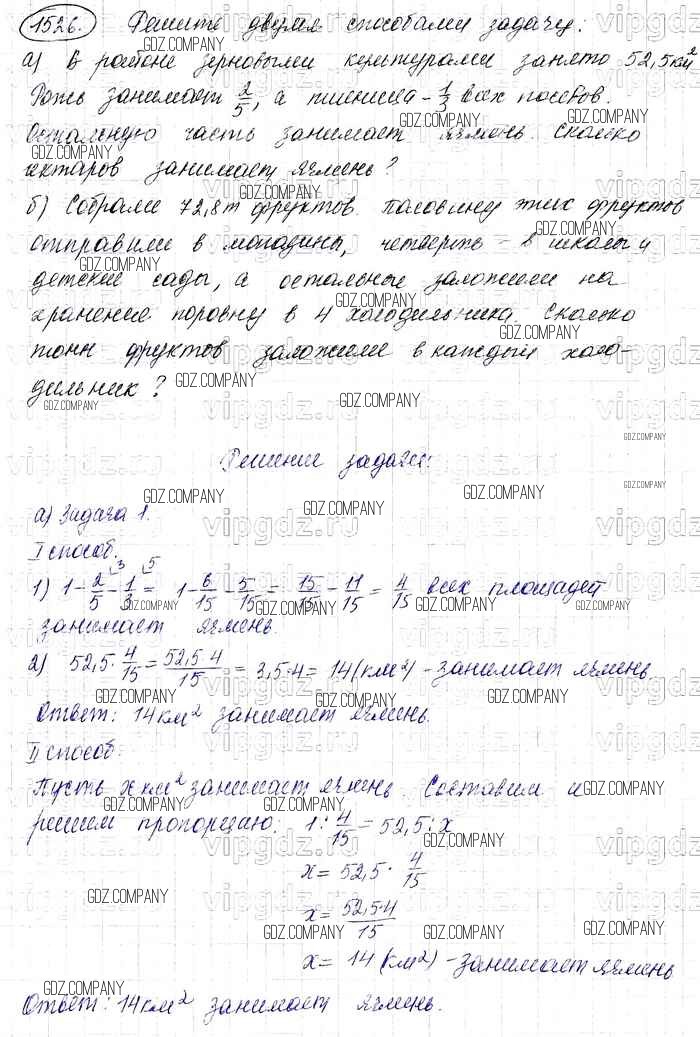 1526. Решите двумя способами задачу:
а) В районе зерновыми культурами занято 52,5 км²
Рожь занимает 2/5, а пшеница - 1/3 всех посевов.
Остальную часть занимает ячмень. Сколько
гектаров занимает ячмень?
б) Собрали 72,8 т фруктов. Половину этих фруктов
отправили в магазины, четверть - в школы и
детские сады, а остальные заложили на
хранение поровну в 4 холодильника. Сколько
тонн фруктов заложили в каждый холо-
дильник?
Решение задачи:
а) Задача 1.
I способ.
1) 1 - 2/5 - 1/3 = 1 - 6/15 - 5/15 = 15/15 - 11/15 = 4/15 всех площадей
занимает ячмень.
2) 52,5 · 4/15 = 52,5·4/15 = 3,5·4 = 14 (км²) - занимает ячмень.
Ответ: 14 км² занимает ячмень.
II способ.
Пусть x км² занимает ячмень. Составим и
решим пропорцию: 1 : 4/15 = 52,5 : x
x = 52,5 · 4/15
x = 52,5·4/15
x = 14 (км²) - занимает ячмень
Ответ: 14 км² занимает ячмень.
GDZ.COMPANY
vipgdz.ru